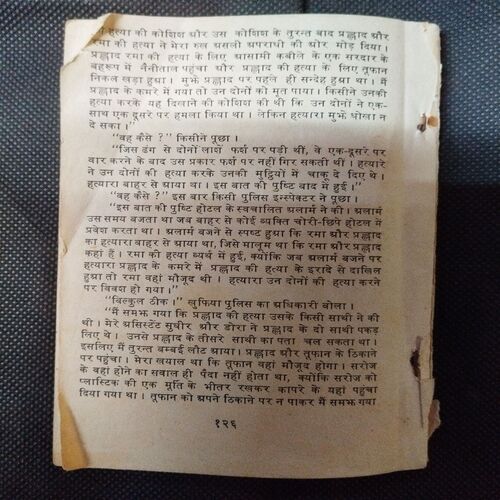 हत्या की कोशिश और उस कोशिश के तुरन्त बाद प्रह्लाद और
रमा की हत्या ने मेरा रुख असली अपराधी की ओर मोड़ दिया।
प्रह्लाद रमा की हत्या के लिए आसामी कबीले के एक सरदार के
बहरूप में नैनीताल पहुंचा और प्रह्लाद की हत्या के लिए तूफान
निकल खड़ा हुआ। मुझे प्रह्लाद पर पहले ही सन्देह हुआ था। मैं
प्रह्लाद के कमरे में गया तो उन दोनों को मृत पाया। किसीने उनकी
हत्या करके यह दिलाने की कोशिश की थी कि उन दोनों ने एक-
साथ एक दूसरे पर हमला किया था। लेकिन हत्यारा मुझे धोखा न
दे सका।"
"वह कैसे?" किसीने पूछा।
"जिस ढंग से दोनों लाशें फर्श पर पड़ी थीं, वे एक-दूसरे पर
वार करने के बाद उस प्रकार फर्श पर नहीं गिर सकती थीं। हत्यारे
ने उन दोनों की हत्या करके उनकी मुट्ठियों में चाकू दे दिए थे।
हत्यारा बाहर से आया था। इस बात की पुष्टि बाद में हुई।"
"वह कैसे?" इस बार किसी पुलिस इन्सपेक्टर ने पूछा।
"इस बात की पुष्टि होटल के स्वचालित अलार्म ने की। अलार्म
उस समय बजता था जब बाहर से कोई व्यक्ति चोरी-छिपे होटल में
प्रवेश करता था। अलार्म बजने से स्पष्ट हुआ कि रमा और प्रह्लाद
का हत्यारा बाहर से आया था, जिसे मालूम था कि रमा और प्रह्लाद
कहां हैं। रमा की हत्या व्यर्थ में हुई, क्योंकि जब अलार्म बजने पर
हत्यारा प्रह्लाद के कमरे में प्रह्लाद की हत्या के इरादे से दाखिल
हुआ तो रमा वहां मौजूद थी। हत्यारा उन दोनों की हत्या करने
पर विवश हो गया।"
"बिल्कुल ठीक।" खुफिया पुलिस का अधिकारी बोला।
"मैं समझ गया कि प्रह्लाद की हत्या उसके किसी साथी ने की
थी। मेरे असिस्टेंट सुधीर और डोरा ने प्रह्लाद के दो साथी पकड़
लिए थे। उनसे प्रह्लाद के तीसरे साथी का पता चल सकता था।
इसलिए मैं तुरन्त बम्बई लौट आया। प्रह्लाद और तूफान के ठिकाने
पर पहुंचा। मेरा खयाल था कि तूफान वहां मौजूद होगा। सरोज
के वहां होने का सवाल ही पैदा नहीं होता था, क्योंकि सरोज को
प्लास्टिक की एक मूर्ति के भीतर रखकर कापरे के यहां पहुंचा
दिया गया था। तूफान को अपने ठिकाने पर न पाकर मैं समझ गया
१२६